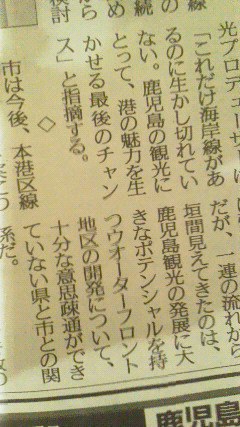 線
続
め
から
検討
光プロデューサ
「これだけ海岸線があ
るのに生かし切れてい
ない。鹿児島の観光に
とって、港の魅力を生
かせる最後のチャン
ス」と指摘する。
◇
市は今後、本港区線
だが、一連の流れから
垣間見えてきたのは、
鹿児島観光の発展に大
きなポテンシャルを持
つウオーターフロント
地区の開発について、
十分な意思疎通ができ
ていない県と市との関
係だ。
鹿児島